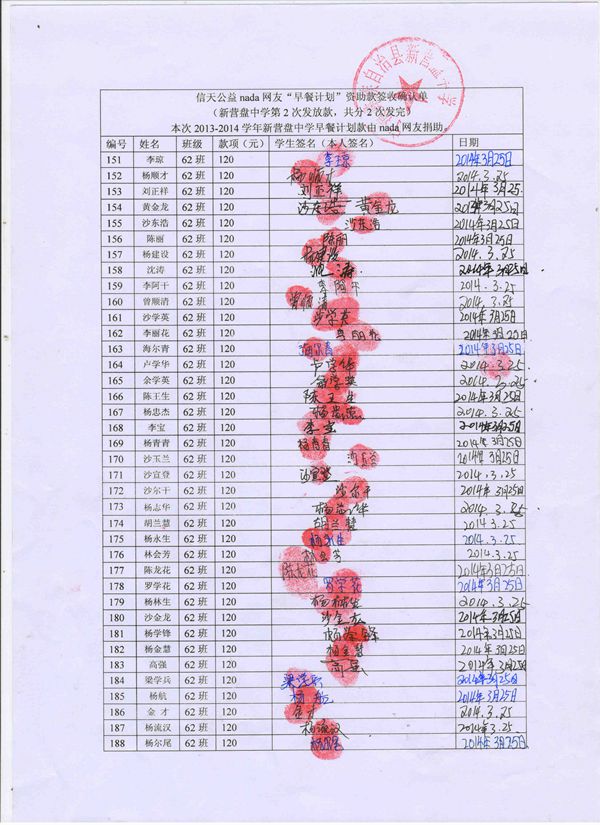 自治县新营盘中学
信天公益 nada 网友“早餐计划”资助款签收确认单
（新营盘中学第 2 次发放款，共分 2 次发完）
本次 2013-2014 学年新营盘中学早餐计划款由 nada 网友捐助。
编号 姓名 班级 款项（元） 学生签名（本人签名） 日期
151 李琼 62 班 120 李琼 2014年3月25日
152 杨顺才 62 班 120 杨顺才 2014.3.25
153 刘正祥 62 班 120 刘正祥 2014年3月25.
154 黄金龙 62 班 120 黄金龙 2014年3月25日
155 沙东浩 62 班 120 沙东浩 2014年3月25日
156 陈丽 62 班 120 陈丽 2014年3月25日
157 杨建设 62 班 120 杨建设 2014.3.25
158 沈涛 62 班 120 沈涛 2014年3月25日
159 李阿干 62 班 120 李阿干 2014.3.25
160 曾顺清 62 班 120 曾顺清 2014.3.25
161 沙学英 62 班 120 沙学英 2014年3月25日
162 李丽花 62 班 120 李丽花 2014年3月25日
163 海尔青 62 班 120 海尔青 2014年3月25日
164 卢学华 62 班 120 卢学华 2014.3.25
165 余学英 62 班 120 余学英 2014.3.25
166 陈王生 62 班 120 陈王生 2014年3月25日
167 杨忠杰 62 班 120 杨忠杰 2014.3.25
168 李宝 62 班 120 李宝 2014年3月25日
169 杨青青 62 班 120 杨青青 2014年3月25日
170 沙玉兰 62 班 120 沙玉兰 2014年3月25日
171 沙宣登 62 班 120 沙宣登 2014.3.25
172 沙尔干 62 班 120 沙尔干 2014年3月25日
173 杨志华 62 班 120 杨志华 2014.3.25
174 胡兰慧 62 班 120 胡兰慧 2014 3.25
175 杨永生 62 班 120 杨永生 2014.3.25.
176 林会芳 62 班 120 林会芳 2014.3.25
177 陈龙花 62 班 120 陈龙花 2014年3月25日
178 罗学花 62 班 120 罗学花 2014年3月25日
179 杨林生 62 班 120 杨林生 2014.3.25
180 沙金龙 62 班 120 沙金龙 2014年3月25日
181 杨学锋 62 班 120 杨学锋 2014年3月25日
182 杨金慧 62 班 120 杨金慧 2014年3月25日
183 高强 62 班 120 高强 2014年3月25日
184 梁学兵 62 班 120 梁学兵 2014年3月25日
185 杨航 62 班 120 杨航 2014年3月25日
186 金 才 62 班 120 金才 2014.3.25
187 杨流汉 62 班 120 杨流汉 2014年3.25
188 杨尔尾 62 班 120 杨尔尾 2014年3月25日